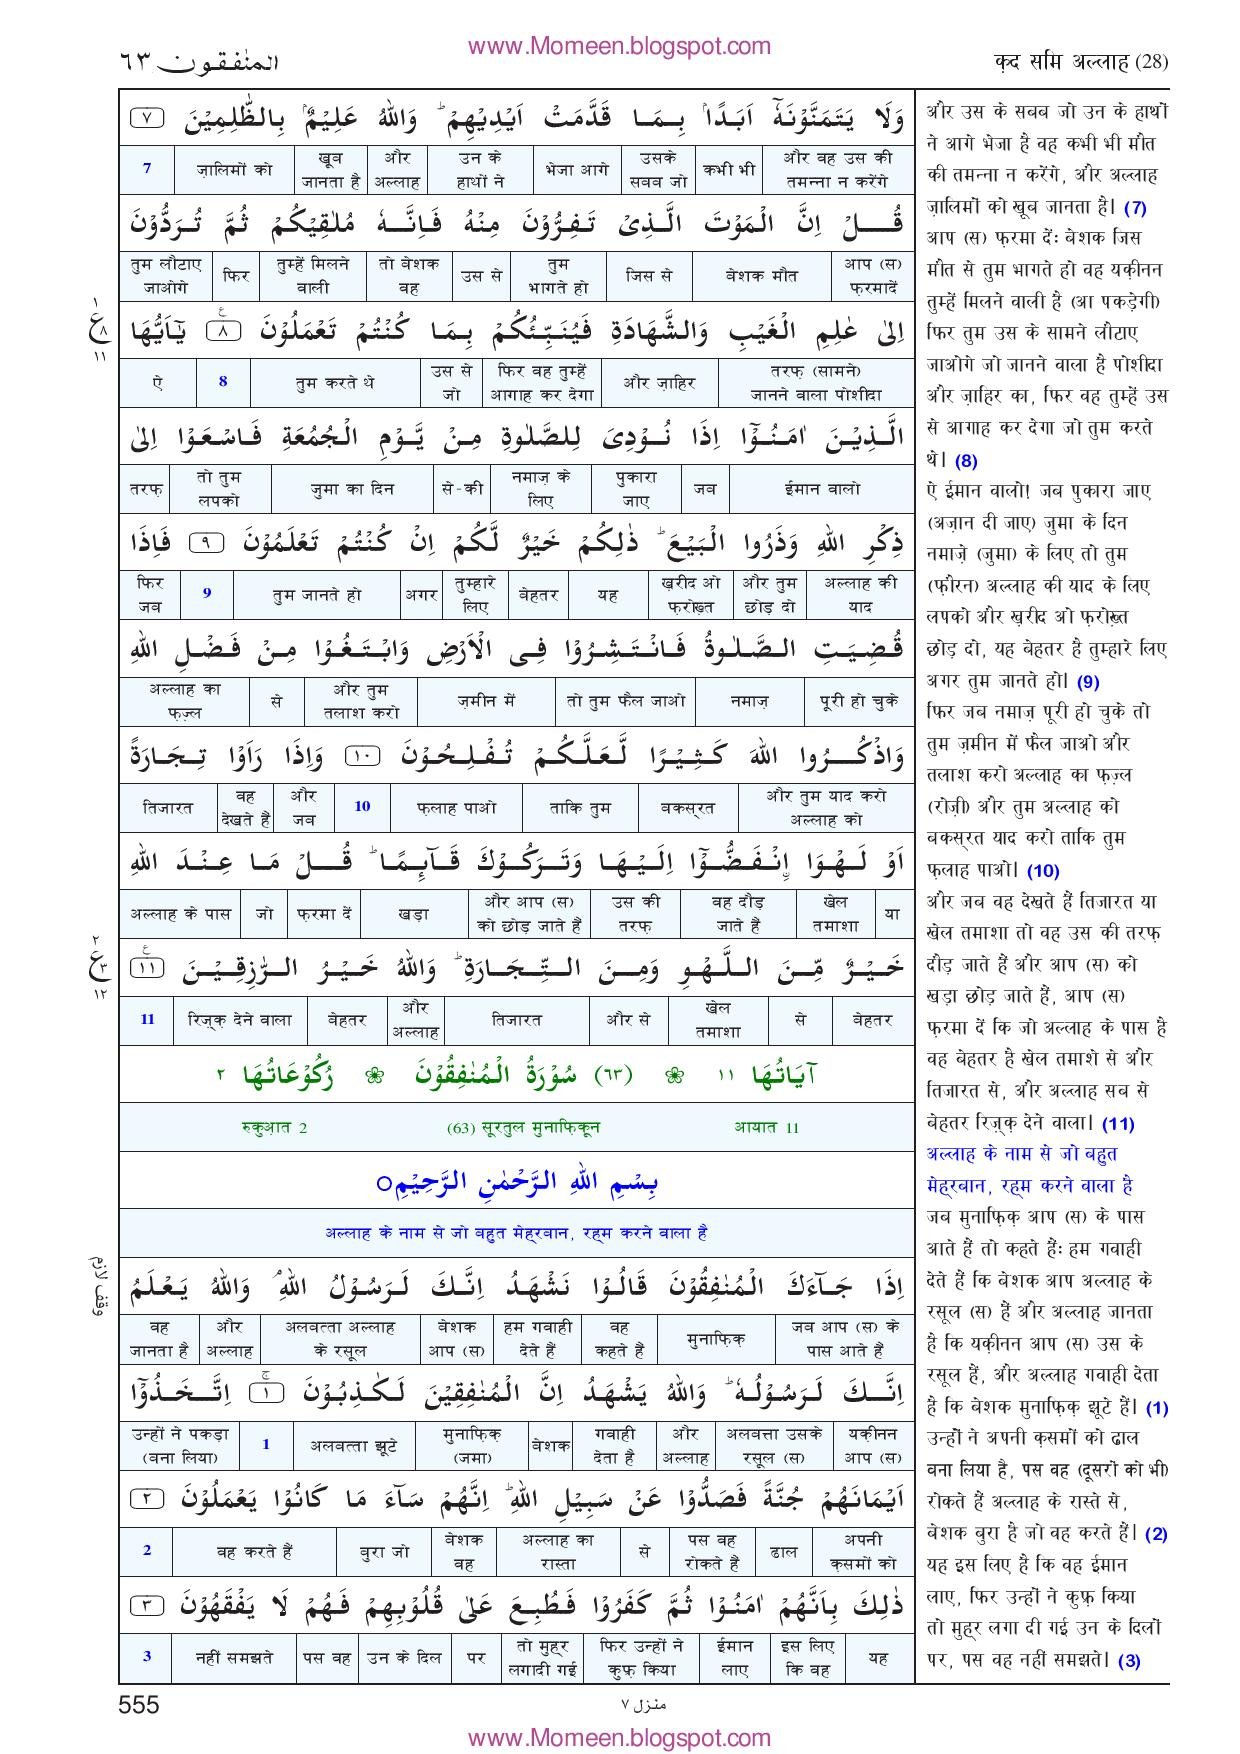 www.Momeen.blogspot.com
المنٰفقون ٦٣
क़द समि अल्लाह (28)
وَلَا يَتَمَنَّوْنَهٗٓ اَبَدًۢا بِمَا قَدَّمَتْ اَيْدِيْهِمْ ؕ وَاللّٰهُ عَلِيْمٌۢ بِالظّٰلِمِيْنَ ٧
और वह उस की तमन्ना न करेंगे | कभी भी | उसके सबब जो | भेजा आगे | उन के हाथों ने | और अल्लाह | ख़ूब जानता है | ज़ालिमों को | 7
قُلْ اِنَّ الْمَوْتَ الَّذِىْ تَفِرُّوْنَ مِنْهُ فَاِنَّهٗ مُلٰقِيْكُمْ ثُمَّ تُرَدُّوْنَ
आप (स) फ़रमादें | बेशक मौत | जिस से | तुम भागते हो | उस से | तो बेशक वह | तुम्हें मिलने वाली | फिर | तुम लौटाए जाओगे
اِلٰى عٰلِمِ الْغَيْبِ وَالشَّهَادَةِ فَيُنَبِّئُكُمْ بِمَا كُنْتُمْ تَعْمَلُوْنَ ٨ يٰٓاَيُّهَا
तरफ़ (सामने) जानने वाला पोशीदा | और ज़ाहिर | फिर वह तुम्हें आगाह कर देगा | उस से जो | तुम करते थे | 8 | ऐ
الَّذِيْنَ اٰمَنُوْٓا اِذَا نُوْدِىَ لِلصَّلٰوةِ مِنْ يَّوْمِ الْجُمُعَةِ فَاسْعَوْا اِلٰى
ईमान वालो | जब | पुकारा जाए | नमाज़ के लिए | से-की | जुमा का दिन | तो तुम लपको | तरफ़
ذِكْرِ اللّٰهِ وَذَرُوا الْبَيْعَ ؕ ذٰلِكُمْ خَيْرٌ لَّكُمْ اِنْ كُنْتُمْ تَعْلَمُوْنَ ٩ فَاِذَا
अल्लाह की याद | और तुम छोड़ दो | ख़रीद ओ फ़रोख़्त | यह | बेहतर | तुम्हारे लिए | अगर | तुम जानते हो | 9 | फिर जब
قُضِيَتِ الصَّلٰوةُ فَانْتَشِرُوْا فِى الْاَرْضِ وَابْتَغُوْا مِنْ فَضْلِ اللّٰهِ
पूरी हो चुके | नमाज़ | तो तुम फैल जाओ | ज़मीन में | और तुम तलाश करो | से | अल्लाह का फ़ज़्ल
وَاذْكُرُوا اللّٰهَ كَثِيْرًا لَّعَلَّكُمْ تُفْلِحُوْنَ ١٠ وَاِذَا رَاَوْا تِجَارَةً
और तुम याद करो अल्लाह को | बकस्रत | ताकि तुम | फ़लाह पाओ | 10 | और जब | वह देखते हैं | तिजारत
اَوْ لَهْوَا ۨانْفَضُّوْٓا اِلَيْهَا وَتَرَكُوْكَ قَآئِمًا ؕ قُلْ مَا عِنْدَ اللّٰهِ
या | खेल तमाशा | वह दौड़ जाते हैं | उस की तरफ़ | और आप (स) को छोड़ जाते हैं | खड़ा | फ़रमा दें | जो | अल्लाह के पास
خَيْرٌ مِّنَ اللَّهْوِ وَمِنَ التِّجَارَةِ ؕ وَاللّٰهُ خَيْرُ الرّٰزِقِيْنَ ١١
बेहतर | से | खेल तमाशा | और से | तिजारत | और अल्लाह | बेहतर | रिज़्क़ देने वाला | 11
اٰيَاتُهَا ١١ ❀ (٦٣) سُوْرَةُ الْمُنٰفِقُوْنَ ❀ رُكُوْعَاتُهَا ٢
आयात 11 (63) सूरतुल मुनाफ़िक़ून रुकुआ़त 2
بِسْمِ اللّٰهِ الرَّحْمٰنِ الرَّحِيْمِ ○
अल्लाह के नाम से जो बहुत मेह्रबान, रह्म करने वाला है
اِذَا جَآءَكَ الْمُنٰفِقُوْنَ قَالُوْا نَشْهَدُ اِنَّكَ لَرَسُوْلُ اللّٰهِ ۘ وَاللّٰهُ يَعْلَمُ
जब आप (स) के पास आते हैं | मुनाफ़िक़ | वह कहते हैं | हम गवाही देते हैं | बेशक आप (स) | अलबत्ता अल्लाह के रसूल | और अल्लाह | वह जानता है
اِنَّكَ لَرَسُوْلُهٗ ؕ وَاللّٰهُ يَشْهَدُ اِنَّ الْمُنٰفِقِيْنَ لَكٰذِبُوْنَ ١ اِتَّخَذُوْٓا
यक़ीनन आप (स) | अलबत्ता उसके रसूल (स) | और अल्लाह | गवाही देता है | बेशक | मुनाफ़िक़ (जमा) | अलबत्ता झूटे | 1 | उन्हों ने पकड़ा (बना लिया)
اَيْمَانَهُمْ جُنَّةً فَصَدُّوْا عَنْ سَبِيْلِ اللّٰهِ ؕ اِنَّهُمْ سَآءَ مَا كَانُوْا يَعْمَلُوْنَ ٢
अपनी क़समों को | ढाल | पस वह रोकते हैं | से | अल्लाह का रास्ता | बेशक वह | बुरा जो | वह करते हैं | 2
ذٰلِكَ بِاَنَّهُمْ اٰمَنُوْا ثُمَّ كَفَرُوْا فَطُبِعَ عَلٰى قُلُوْبِهِمْ فَهُمْ لَا يَفْقَهُوْنَ ٣
यह | इस लिए कि वह | ईमान लाए | फिर उन्हों ने कुफ़ किया | तो मुह्र लगादी गई | पर | उन के दिल | पस वह | नहीं समझते | 3
और उस के सबब जो उन के हाथों
ने आगे भेजा है वह कभी भी मौत
की तमन्ना न करेंगे, और अल्लाह
ज़ालिमों को ख़ूब जानता है। (7)
आप (स) फ़रमा दें: बेशक जिस
मौत से तुम भागते हो वह यक़ीनन
तुम्हें मिलने वाली है (आ पकड़ेगी)
फिर तुम उस के सामने लौटाए
जाओगे जो जानने वाला है पोशीदा
और ज़ाहिर का, फिर वह तुम्हें उस
से आगाह कर देगा जो तुम करते
थे। (8)
ऐ ईमान वालो! जब पुकारा जाए
(अज़ान दी जाए) जुमा के दिन
नमाज़े (जुमा) के लिए तो तुम
(फ़ौरन) अल्लाह की याद के लिए
लपको और ख़रीद ओ फ़रोख़्त
छोड़ दो, यह बेहतर है तुम्हारे लिए
अगर तुम जानते हो। (9)
फिर जब नमाज़ पूरी हो चुके तो
तुम ज़मीन में फैल जाओ और
तलाश करो अल्लाह का फ़ज़्ल
(रोज़ी) और तुम अल्लाह को
बकस्रत याद करो ताकि तुम
फ़लाह पाओ। (10)
और जब वह देखते हैं तिजारत या
खेल तमाशा तो वह उस की तरफ़
दौड़ जाते हैं और आप (स) को
खड़ा छोड़ जाते हैं, आप (स)
फ़रमा दें कि जो अल्लाह के पास है
वह बेहतर है खेल तमाशे से और
तिजारत से, और अल्लाह सब से
बेहतर रिज़्क़ देने वाला। (11)
अल्लाह के नाम से जो बहुत
मेह्रबान, रह्म करने वाला है
जब मुनाफ़िक़ आप (स) के पास
आते हैं तो कहते हैं: हम गवाही
देते हैं कि बेशक आप अल्लाह के
रसूल (स) हैं और अल्लाह जानता
है कि यक़ीनन आप (स) उस के
रसूल हैं, और अल्लाह गवाही देता
है कि बेशक मुनाफ़िक़ झूटे हैं। (1)
उन्हों ने अपनी क़समों को ढाल
बना लिया है, पस वह (दूसरों को भी)
रोकते हैं अल्लाह के रास्ते से,
बेशक बुरा है जो वह करते हैं। (2)
यह इस लिए है कि वह ईमान
लाए, फिर उन्हों ने कुफ़्र किया
तो मुह्र लगा दी गई उन के दिलों
पर, पस वह नहीं समझते। (3)
١
ع ٨
١١
٢
ع ٣
١٢
وقف لازم
555
منزل ٧
www.Momeen.blogspot.com